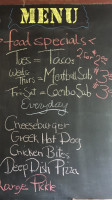 MENU
food specials
Tues = Tacos
Wed
Thurs = Meatball Sub
Fri-Sat = Combo Sub
Everyday
Cheeseburger
Greek Hot Dog
Chicken Bites
Deep Dish Pizza
Large Pickle